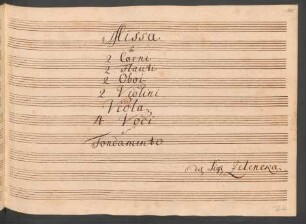 Missa
à
2 Corni
2 Flauti
2 Oboi
2 Violini
Viola
4 Voci
e
Fondamento
del Sig. Zelencka.